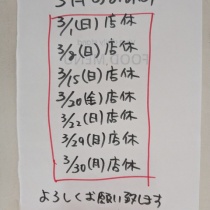 3/1(日)店休
3/8(日)店休
3/15(日)店休
3/20(金)店休
3/22(日)店休
3/29(月)店休
3/30(月)店休
よろしくお願い致します